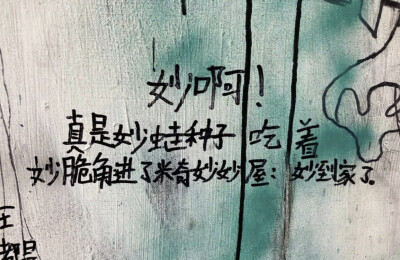 妙啊！
真是妙蛙种子吃着
妙脆角进了米奇妙妙屋：妙到家了